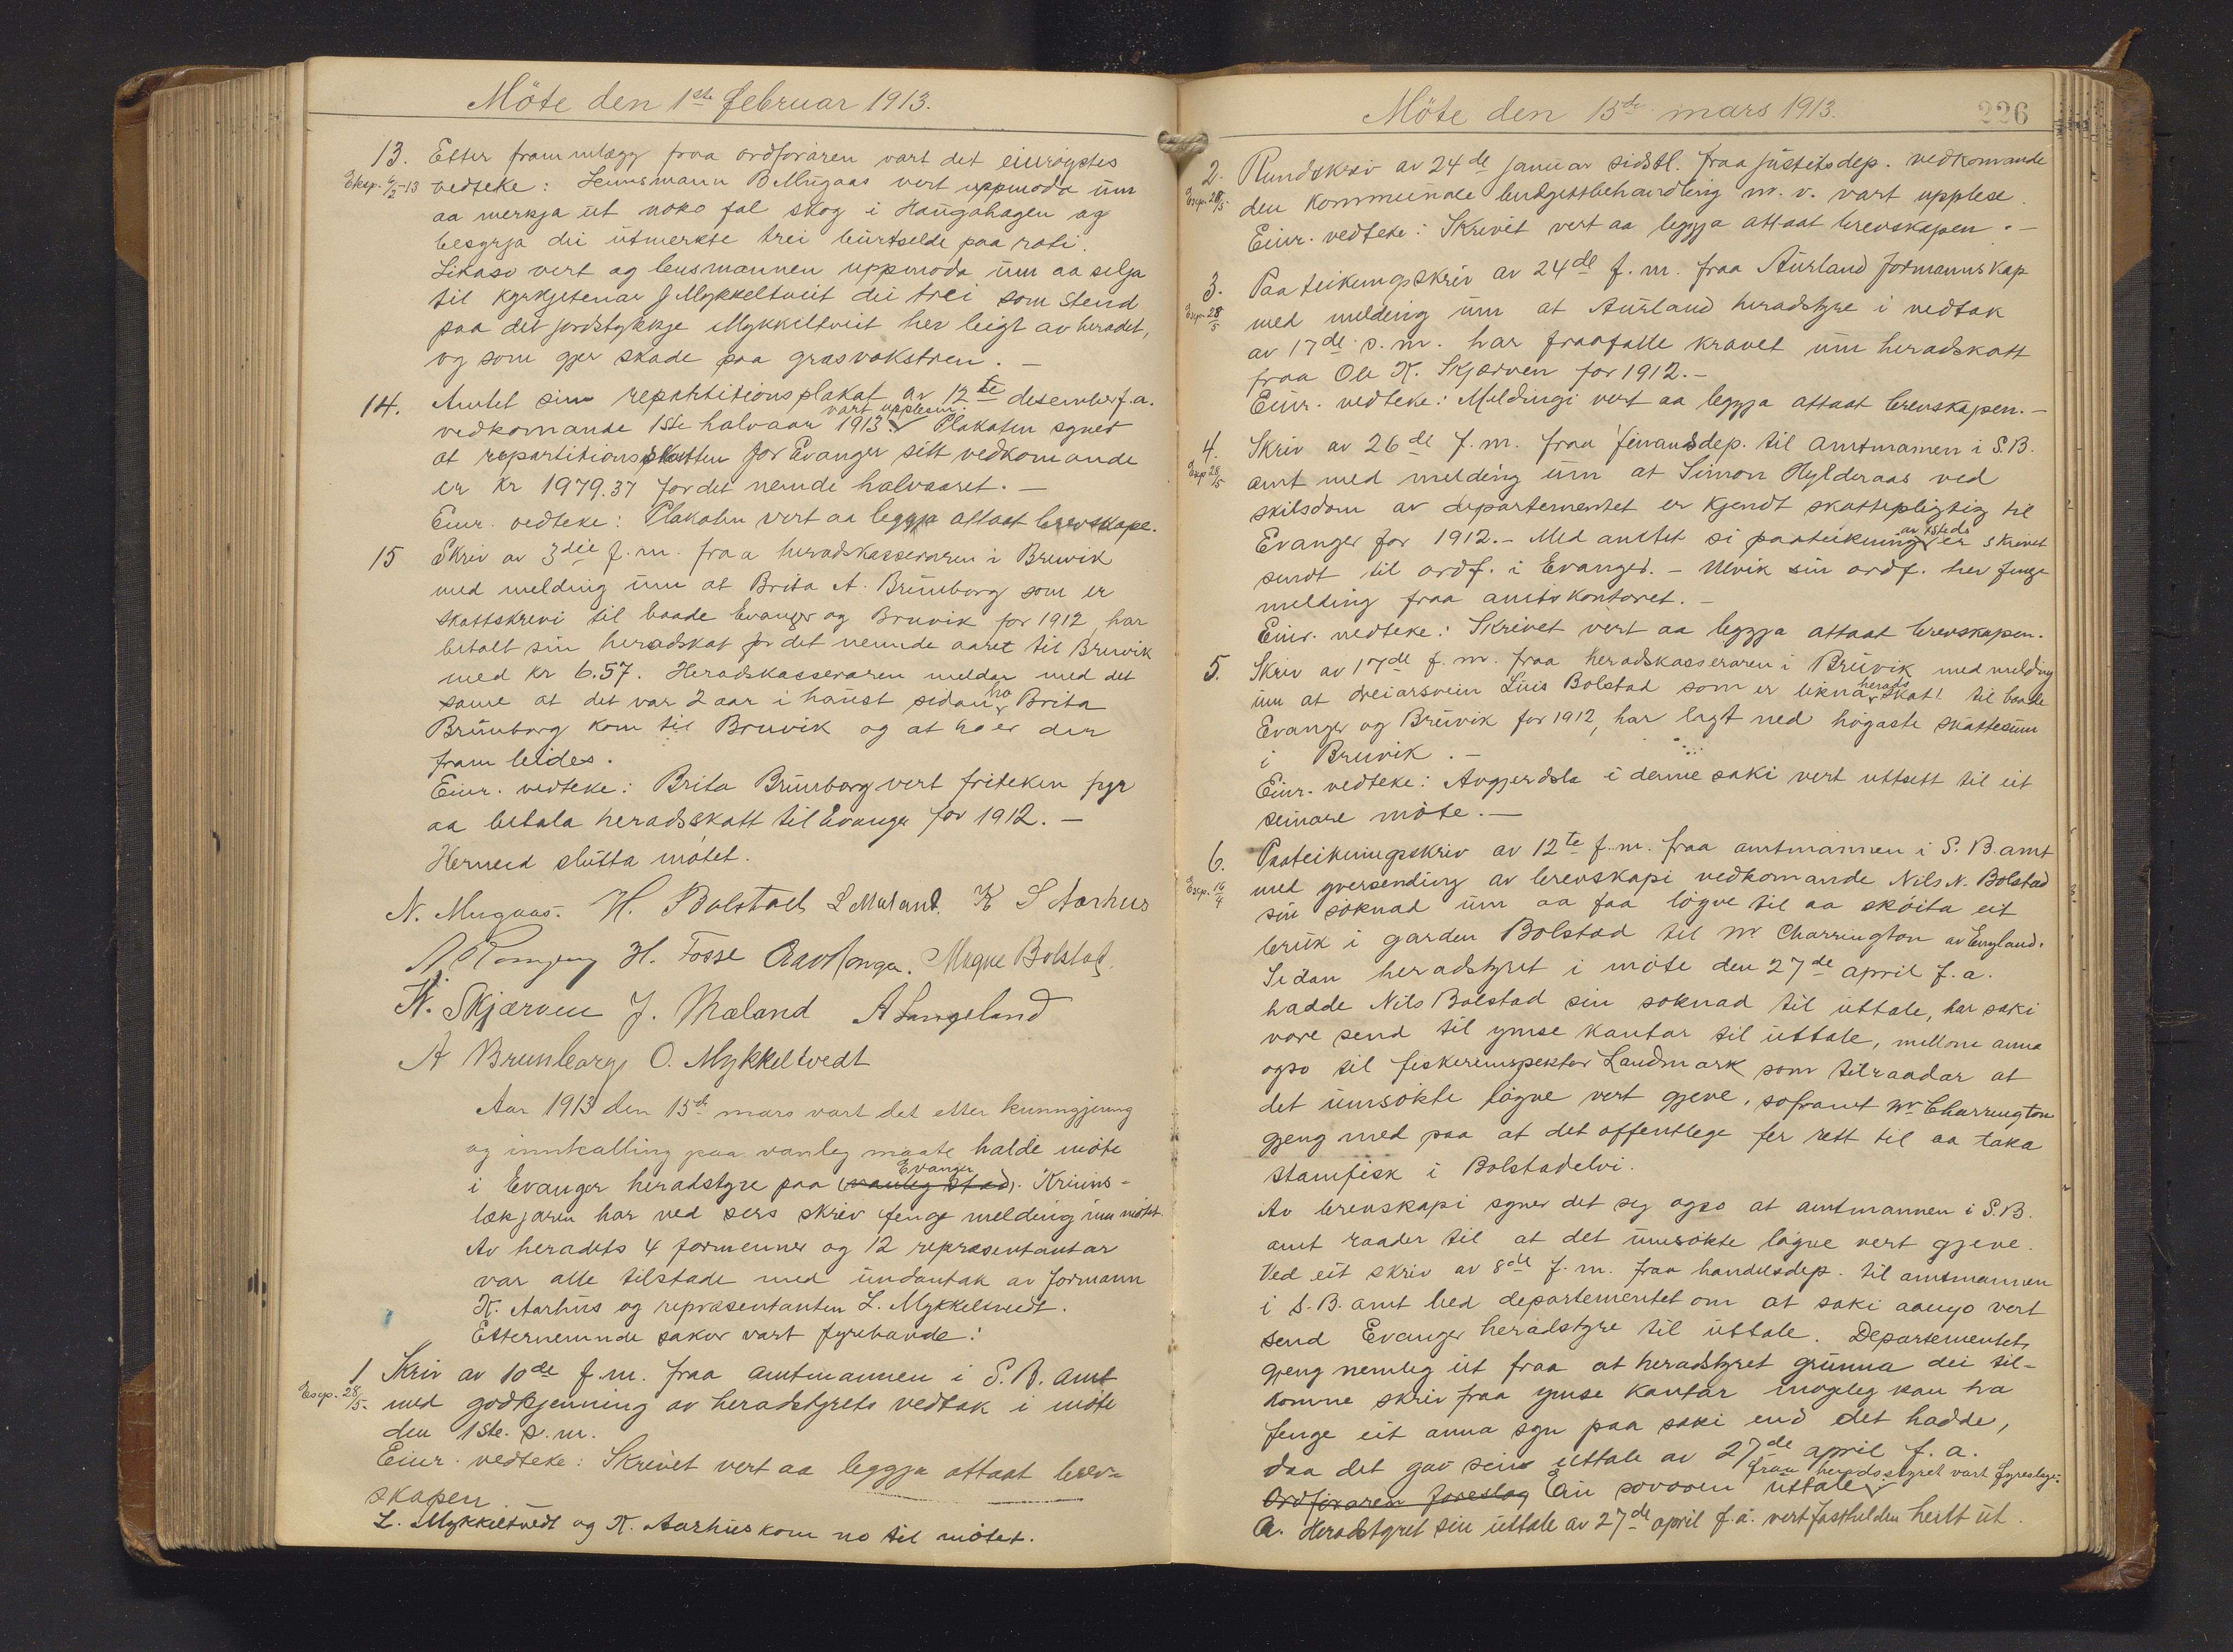 Möte den 1ste februar 1913.
13. Etter frammlegg fraa ordföraren vart det einrøystes
Eksp. 6/2-13 vedteke: Lennsmann B Mügaas vert uppmoda üm
aa merkja üt noko fal skog i Haügahagen og
besyrja dei ütmerkte trei burtselde paa roti.
Likaso vert og lensmannen uppmoda üm aa selja
til kyrkjetenar J Mykkeltveit dei trei som stend
paa det jordstykkje Mykkeltveit her leigt av heradet,
og som gjer skade paa grasvokstren. —
14. Amtet sin repartitionsplakat av 12te desember f.a.
vart upplesen.
vedkomande 1ste halvaar 1913. Plakaten syner
at repartitionsskatten for Evanger sitt vedkomande
er kr 1979.37 for det nemde halvaaret. —
Einr. vedteke: Plakaten vert aa leggja attaat brevskape.
15 Skriv av 3die f.m. fraa heradskasseraren i Bruvik
med melding üm at Brita A. Brünborg som er
skattskrevi til baade Evanger og Bruvik for 1912, har
betalt sin heradskat for det nemnde aaret til Bruvik
med kr 6.57. Heradskasseraren meldar med det
same at det var 2 aar i haüst sidan ho Brita
Brünborg kom til Bruvik og at ho er der
fram leides.
Einr. vedteke: Brita Brünborg vert friteken fyr
aa betala heradsskatt til Evanger for 1912. —
Hermed slütta mötet.
N. Mugaas. H. Bolstad L Mæland. K S Aarhus
H. Fosse Magne Bolstad.
K. Skjærven J. Mæland A Langeland
A Brunborg O. Mykkeltvedt
Aar 1913 den 15de mars vart det etter kunngjering
og innkalling paa vanleg maate halde möte
i Evanger heradstyre paa vanleg stad. Evanger Kriins-
lækjaren har ved sers skriv fenge melding üm mötet.
Av heradets 4 formenner og 12 repræsentantar
var alle tilstade med ündantak av formann
K. Aarhüs og repræsentanten L. Mykkeltvedt.
Etternemnde sakor vart fyrehavde:
1 Skriv av 10de f.m. fraa amtmannen i S.B. amt
Exp. 28/5. med godkjenning av heradstyrets vedtak i möte
den 1ste s.m.
Einr. vedteke: Skrivet vert aa leggja attaat brev-
skapen. —
L. Mykkeltvedt og K. Aarhüs kom no til mötet.
Möte den 15de mars 1913. 226
2. Rundskriv av 24de januar sidstl. fraa jüstitsdep. vedkomande
Exp. 28/5. den kommünale budgettbehandling m. v. vart upplese.
Einr. vedteke: Skrivet vert aa leggja attaat brevskapen. —
3. Paateikningsskriv av 24de f.m. fraa Aürland formannskap
Exp. 28/5 med melding üm at Aürland heradstyre i vedtak
av 17de s.m. har fraafalle kravet üm heradskatt
fraa Ole K. Skjærven for 1912. —
Einr. vedteke: Meldingi vert aa leggja attaat brevskapen. —
4. Skriv av 26de f.m. fraa finansdep. til amtmannen i S.B.
Exp 28/5 amt med melding üm at Simon Hylderaas ved
skilsdom av departementet er kjendt skattepligtig til
Evanger for 1912. — Med amtet si paateikning av 1ste ds er skrivet
sendt til ordf. i Evanger. — Ulvik sin ordf. her fenge
melding fraa amtskontoret. —
Einr. vedteke: Skrivet vert aa leggja attaat brevskapen.
5. Skriv av 17de f.m. fraa heradskasseraren i Brüvik med melding
üm at dreiarsvein Lüis Bolstad som er likna heradsskat til baade
Evanger og Brüvik for 1912, har lagt ned högaste skattesüm
i Bruvik. —
Einr. vedteke: Avgjerdsla i denne saki vert uttsett til eit
seinare möte. —
6. Paateikningsskriv av 12te f.m. fraa amtmannen i S.B. amt
Exp. 16/4 med yversending av brevskapi vedkomande Nils N. Bolstad
sin söknad üm aa faa lögve til aa sköita eit
brük i garden Bolstad til Mr Charrington av England.
Sidan heradstyret i möte den 27de april f.a.
hadde Nils Bolstad sin söknad til üttale, har saki
vore send til ymse kantar til üttale, millom anna
ogso til fiskeriinspektør Landmark som tilraadar at
det ümsökte lögve vert gjeve, soframt Mr Charrington
gjeng med paa at det offentlege fer rett til aa taka
stamfisk i Bolstadelvi.
Av brevskapi syner det seg ogso at amtmannen i S.B.
amt raader til at det ümsökte lögve vert gjeve.
Ved eit skriv av 8de f.m. fraa handelsdep. til amtmannen
i S.B. amt bed departementet om at saki aanyo vert
send Evanger heradstyre til üttale. Departementet
gjeng nemleg üt fraa at heradstyret grünna dei til-
komne skriv fraa ymse kantar mögeleg kan ha
fenge eit anna syn paa saki end det hadde,
daa det gav sin üttale av 27de april f.a.
Ordföraren foreslog Ein sovoren üttale fraa heradsstyret vart fyreslege:
a. Heradstyret sin üttale av 27de april f.a. vert fasthelden heilt üt.